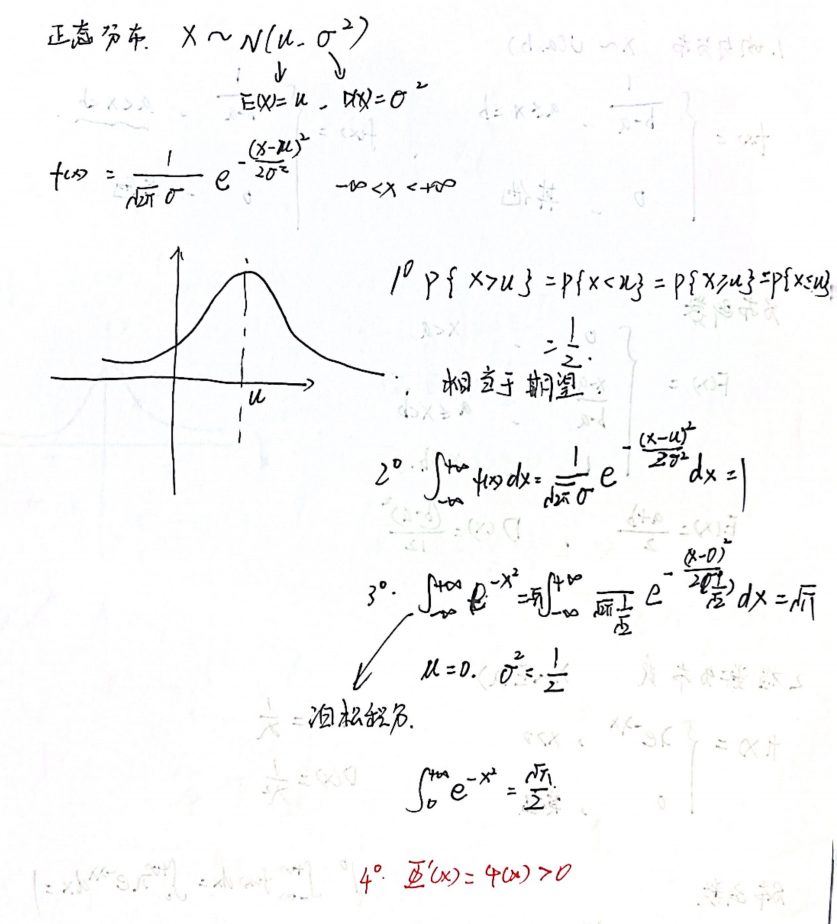 正态分布. X ~ N(u, σ²)
↓ ↘
E(X)=u, D(X)=σ²
f(x) = \frac{1}{\sqrt{2π} σ} e^{-\frac{(x-u)^2}{2σ^2}} -∞<x<+∞
1° P{X>u} = P{X<u} = P{X≥u} = P{X≤u}
= \frac{1}{2}.
u
相当于期望.
2° ∫_{-∞}^{+∞} f(x)dx = \frac{1}{\sqrt{2π} σ} e^{-\frac{(x-u)^2}{2σ^2}} dx = 1
3°. ∫_{-∞}^{+∞} e^{-x^2} = \sqrt{π} ∫_{-∞}^{+∞} \frac{1}{\sqrt{2π} \frac{1}{\sqrt{2}}} e^{-\frac{(x-0)^2}{2(\frac{1}{\sqrt{2}})^2}} dx = \sqrt{π}
u=0. σ² = \frac{1}{2}
泊松积分.
∫_{0}^{+∞} e^{-x^2} = \frac{\sqrt{π}}{2}.
4°. Φ'(x) = φ(x) > 0